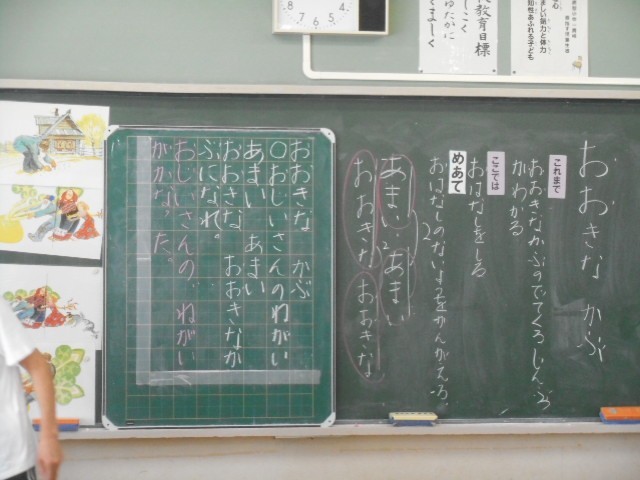 教育目標
しこく
ゆたかに
くましく
ましい気力と体力
知性あふれる子ども
8 7 6 5 4
おおきな かぶ
これまで
おおきなかぶのでてくるじんぶつ
がわかる
ここでは
おはなしをしる
めあて
おはなしのないようをかんがえる。
あまい あまい
おおきな おおきな
おおきな かぶ
○おじいさんのねがい
あまい あまい
おおきな おおきなか
ぶになれ。
おじいさんの、ねがい
がかなった。